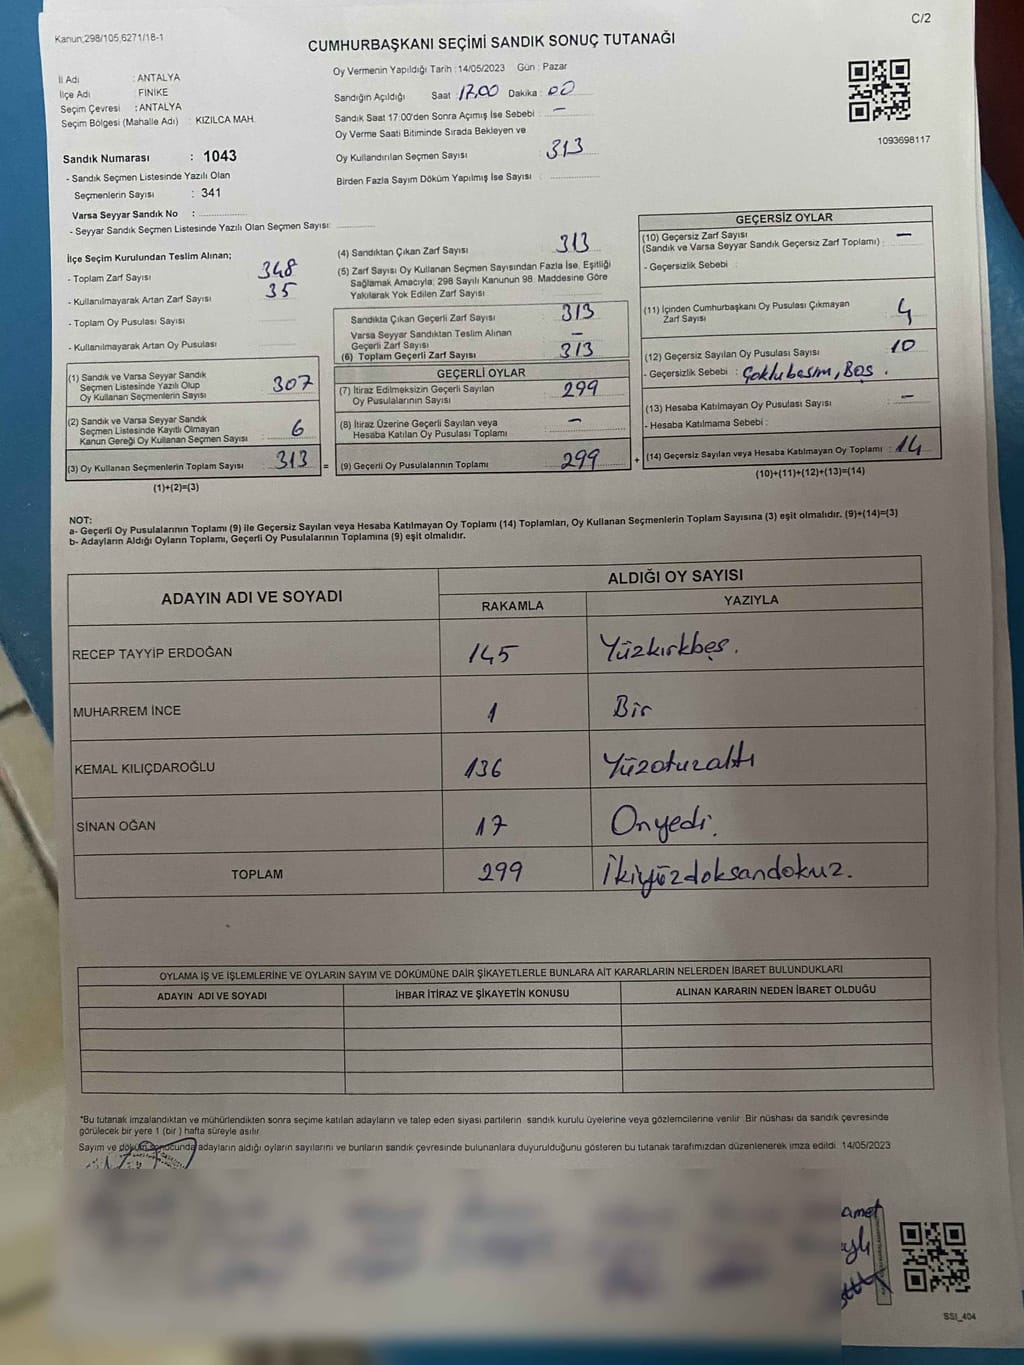 C/2
Kanun;298/105,6271/18-1
CUMHURBAŞKANI SEÇİMİ SANDIK SONUÇ TUTANAĞI
İl Adı : ANTALYA
İlçe Adı : FİNİKE
Seçim Çevresi : ANTALYA
Seçim Bölgesi (Mahalle Adı) : KIZILCA MAH.
Sandık Numarası : 1043
- Sandık Seçmen Listesinde Yazılı Olan
Seçmenlerin Sayısı : 341
Varsa Seyyar Sandık No :
- Seyyar Sandık Seçmen Listesinde Yazılı Olan Seçmen Sayısı:
Oy Vermenin Yapıldığı Tarih :14/05/2023 Gün : Pazar
Sandığın Açıldığı Saat : 17,00 Dakika : 00
Sandık Saat 17:00'den Sonra Açımış İse Sebebi : —
Oy Verme Saati Bitiminde Sırada Bekleyen ve
Oy Kullandırılan Seçmen Sayısı : 313
Birden Fazla Sayım Döküm Yapılmış İse Sayısı :
1093698117
İlçe Seçim Kurulundan Teslim Alınan;
- Toplam Zarf Sayısı : 348
- Kullanılmayarak Artan Zarf Sayısı : 35
- Toplam Oy Pusulası Sayısı
- Kullanılmayarak Artan Oy Pusulası
(1) Sandık ve Varsa Seyyar Sandık
Seçmen Listesinde Yazılı Olup
Oy Kullanan Seçmenlerin Sayısı : 307
(2) Sandık ve Varsa Seyyar Sandık
Seçmen Listesinde Kayıtlı Olmayan
Kanun Gereği Oy Kullanan Seçmen Sayısı : 6
(3) Oy Kullanan Seçmenlerin Toplam Sayısı : 313 =
(1)+(2)=(3)
(4) Sandıktan Çıkan Zarf Sayısı : 313
(5) Zarf Sayısı Oy Kullanan Seçmen Sayısından Fazla İse, Eşitliği
Sağlamak Amacıyla; 298 Sayılı Kanunun 98. Maddesine Göre
Yakılarak Yok Edilen Zarf Sayısı
Sandıkta Çıkan Geçerli Zarf Sayısı : 313
Varsa Seyyar Sandıktan Teslim Alınan
Geçerli Zarf Sayısı : —
(6) Toplam Geçerli Zarf Sayısı : 313
GEÇERLİ OYLAR
(7) İtiraz Edilmeksizin Geçerli Sayılan
Oy Pusulalarının Sayısı : 299
(8) İtiraz Üzerine Geçerli Sayılan veya
Hesaba Katılan Oy Pusulası Toplamı : —
(9) Geçerli Oy Pusulalarının Toplamı : 299 +
GEÇERSİZ OYLAR
(10) Geçersiz Zarf Sayısı
(Sandık ve Varsa Seyyar Sandık Geçersiz Zarf Toplamı) : —
- Geçersizlik Sebebi :
(11) İçinden Cumhurbaşkanı Oy Pusulası Çıkmayan
Zarf Sayısı : 4
(12) Geçersiz Sayılan Oy Pusulası Sayısı : 10
- Geçersizlik Sebebi : Çoklubasım, Boş.
(13) Hesaba Katılmayan Oy Pusulası Sayısı : —
- Hesaba Katılmama Sebebi :
(14) Geçersiz Sayılan veya Hesaba Katılmayan Oy Toplamı : 14
(10)+(11)+(12)+(13)=(14)
NOT:
a- Geçerli Oy Pusulalarının Toplamı (9) ile Geçersiz Sayılan veya Hesaba Katılmayan Oy Toplamı (14) Toplamları, Oy Kullanan Seçmenlerin Toplam Sayısına (3) eşit olmalıdır. (9)+(14)=(3)
b- Adayların Aldığı Oyların Toplamı, Geçerli Oy Pusulalarının Toplamına (9) eşit olmalıdır.
ADAYIN ADI VE SOYADI ALDIĞI OY SAYISI
RAKAMLA YAZIYLA
RECEP TAYYİP ERDOĞAN 145 Yüzkırkbeş.
MUHARREM İNCE 1 Bir
KEMAL KILIÇDAROĞLU 136 Yüzotuzaltı
SİNAN OĞAN 17 Onyedi.
TOPLAM 299 İkiyüzdoksandokuz.
OYLAMA İŞ VE İŞLEMLERİNE VE OYLARIN SAYIM VE DÖKÜMÜNE DAİR ŞİKAYETLERLE BUNLARA AİT KARARLARIN NELERDEN İBARET BULUNDUKLARI
ADAYIN ADI VE SOYADI İHBAR İTİRAZ VE ŞİKAYETİN KONUSU ALINAN KARARIN NEDEN İBARET OLDUĞU
*Bu tutanak imzalandıktan ve mühürlendikten sonra seçime katılan adayların ve talep eden siyasi partilerin sandık kurulu üyelerine veya gözlemcilerine verilir. Bir nüshası da sandık çevresinde
görülecek bir yere 1 (bir ) hafta süreyle asılır.
Sayım ve döküm sonucunda adayların aldığı oyların sayılarını ve bunların sandık çevresinde bulunanlara duyurulduğunu gösteren bu tutanak tarafımızdan düzenlenerek imza edildi. 14/05/2023
SSI_404